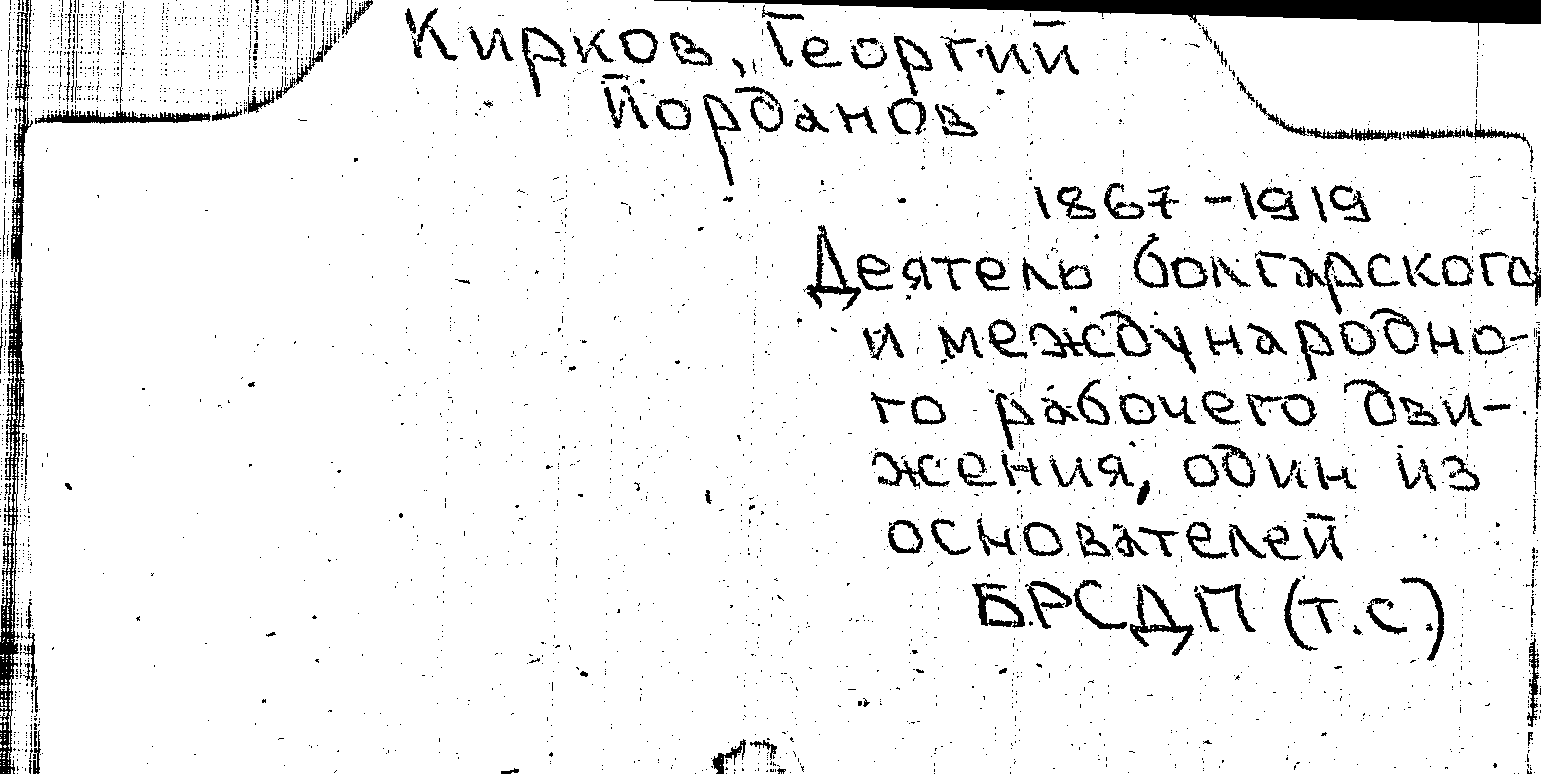 Кирков, Георгий
Йорданов
1867-1919
Деятель болгарского
и международно-
го рабочего дви-
жения, один из
основателей
БРСДП (т.с.)